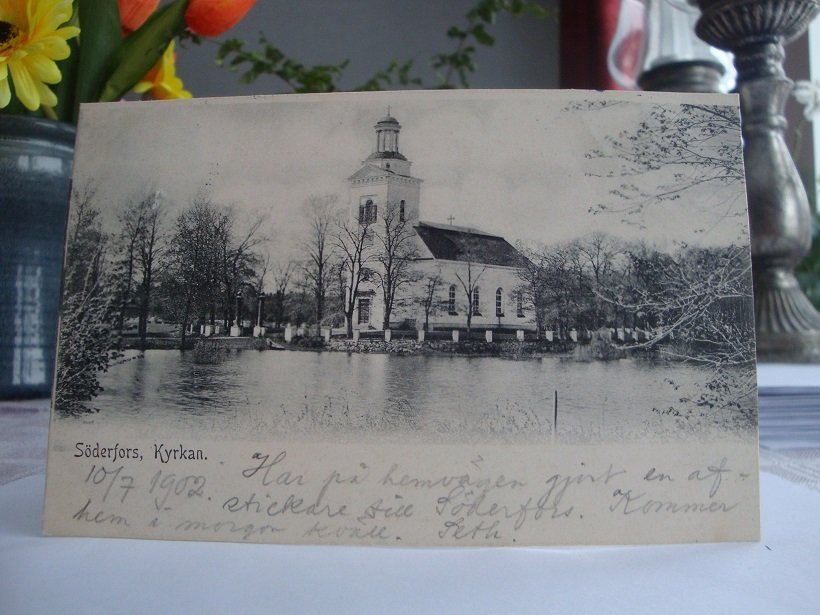 Söderfors, Kyrkan.
10/7 1902. Har på hemvägen gjort en af-
stickare till Söderfors. Kommer
hem i morgon kväll. Seth.